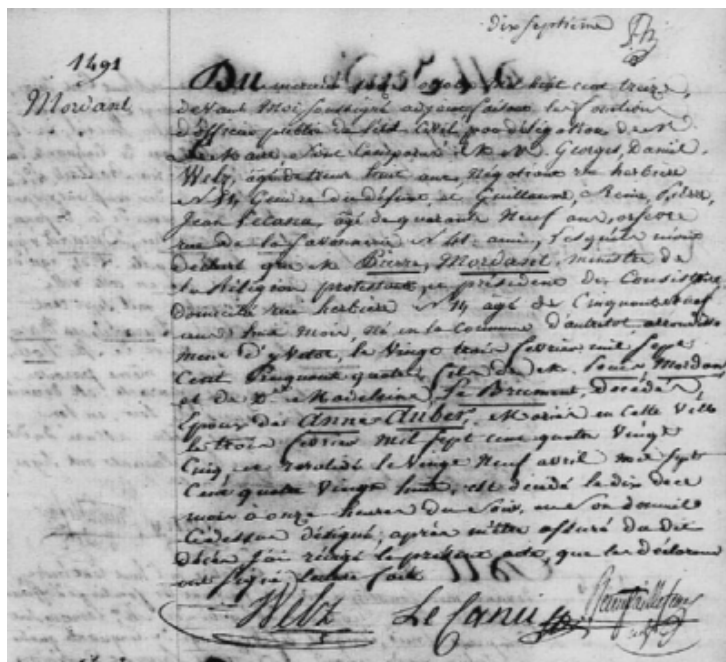 dix septième
1491
Mordant
Du mercredi onze mil huit cent treize
devant moi soussigné adjoint faisant les fonctions
d'officier public de l'état civil par délégation de M.
le Maire, sont comparus M. M. Georges, Daniel
Welz, âgé de trente ans, négociant rue herbière
N 14 Gendre du défunt et Guillaume, René,
Jean Lecanu, âgé de quarante neuf ans, orfèvre
rue de la Savonnerie N ami, Lesquels m'ont
déclaré que M. Pierre, Mordant, ministre de
la Religion protestante, président du Consistoire,
domicilié rue herbière N 14 âgé de Cinquante neuf
ans huit mois né en la commune d'autretot arrondisse
ment d'yvetot, le Vingt trois février mil sept
Cent Cinquante quatre, fils de M. Louis Mordant
et de D. Madeleine, Le Brument, décédés,
Epoux de Anne Auber, Mariés en cette Ville
le trois février mil sept cent quatre vingt
Cinq et le Vingt Neuf avril mil sept
Cent quatre vingt est décédé le dix de ce
mois à onze heures du Soir, en Son domicile
Cidessus désigné; après m'être assuré du dit
décès j'ai rédigé le présent acte, que les déclarans
ont signé lecture faite
Welz Le Canu